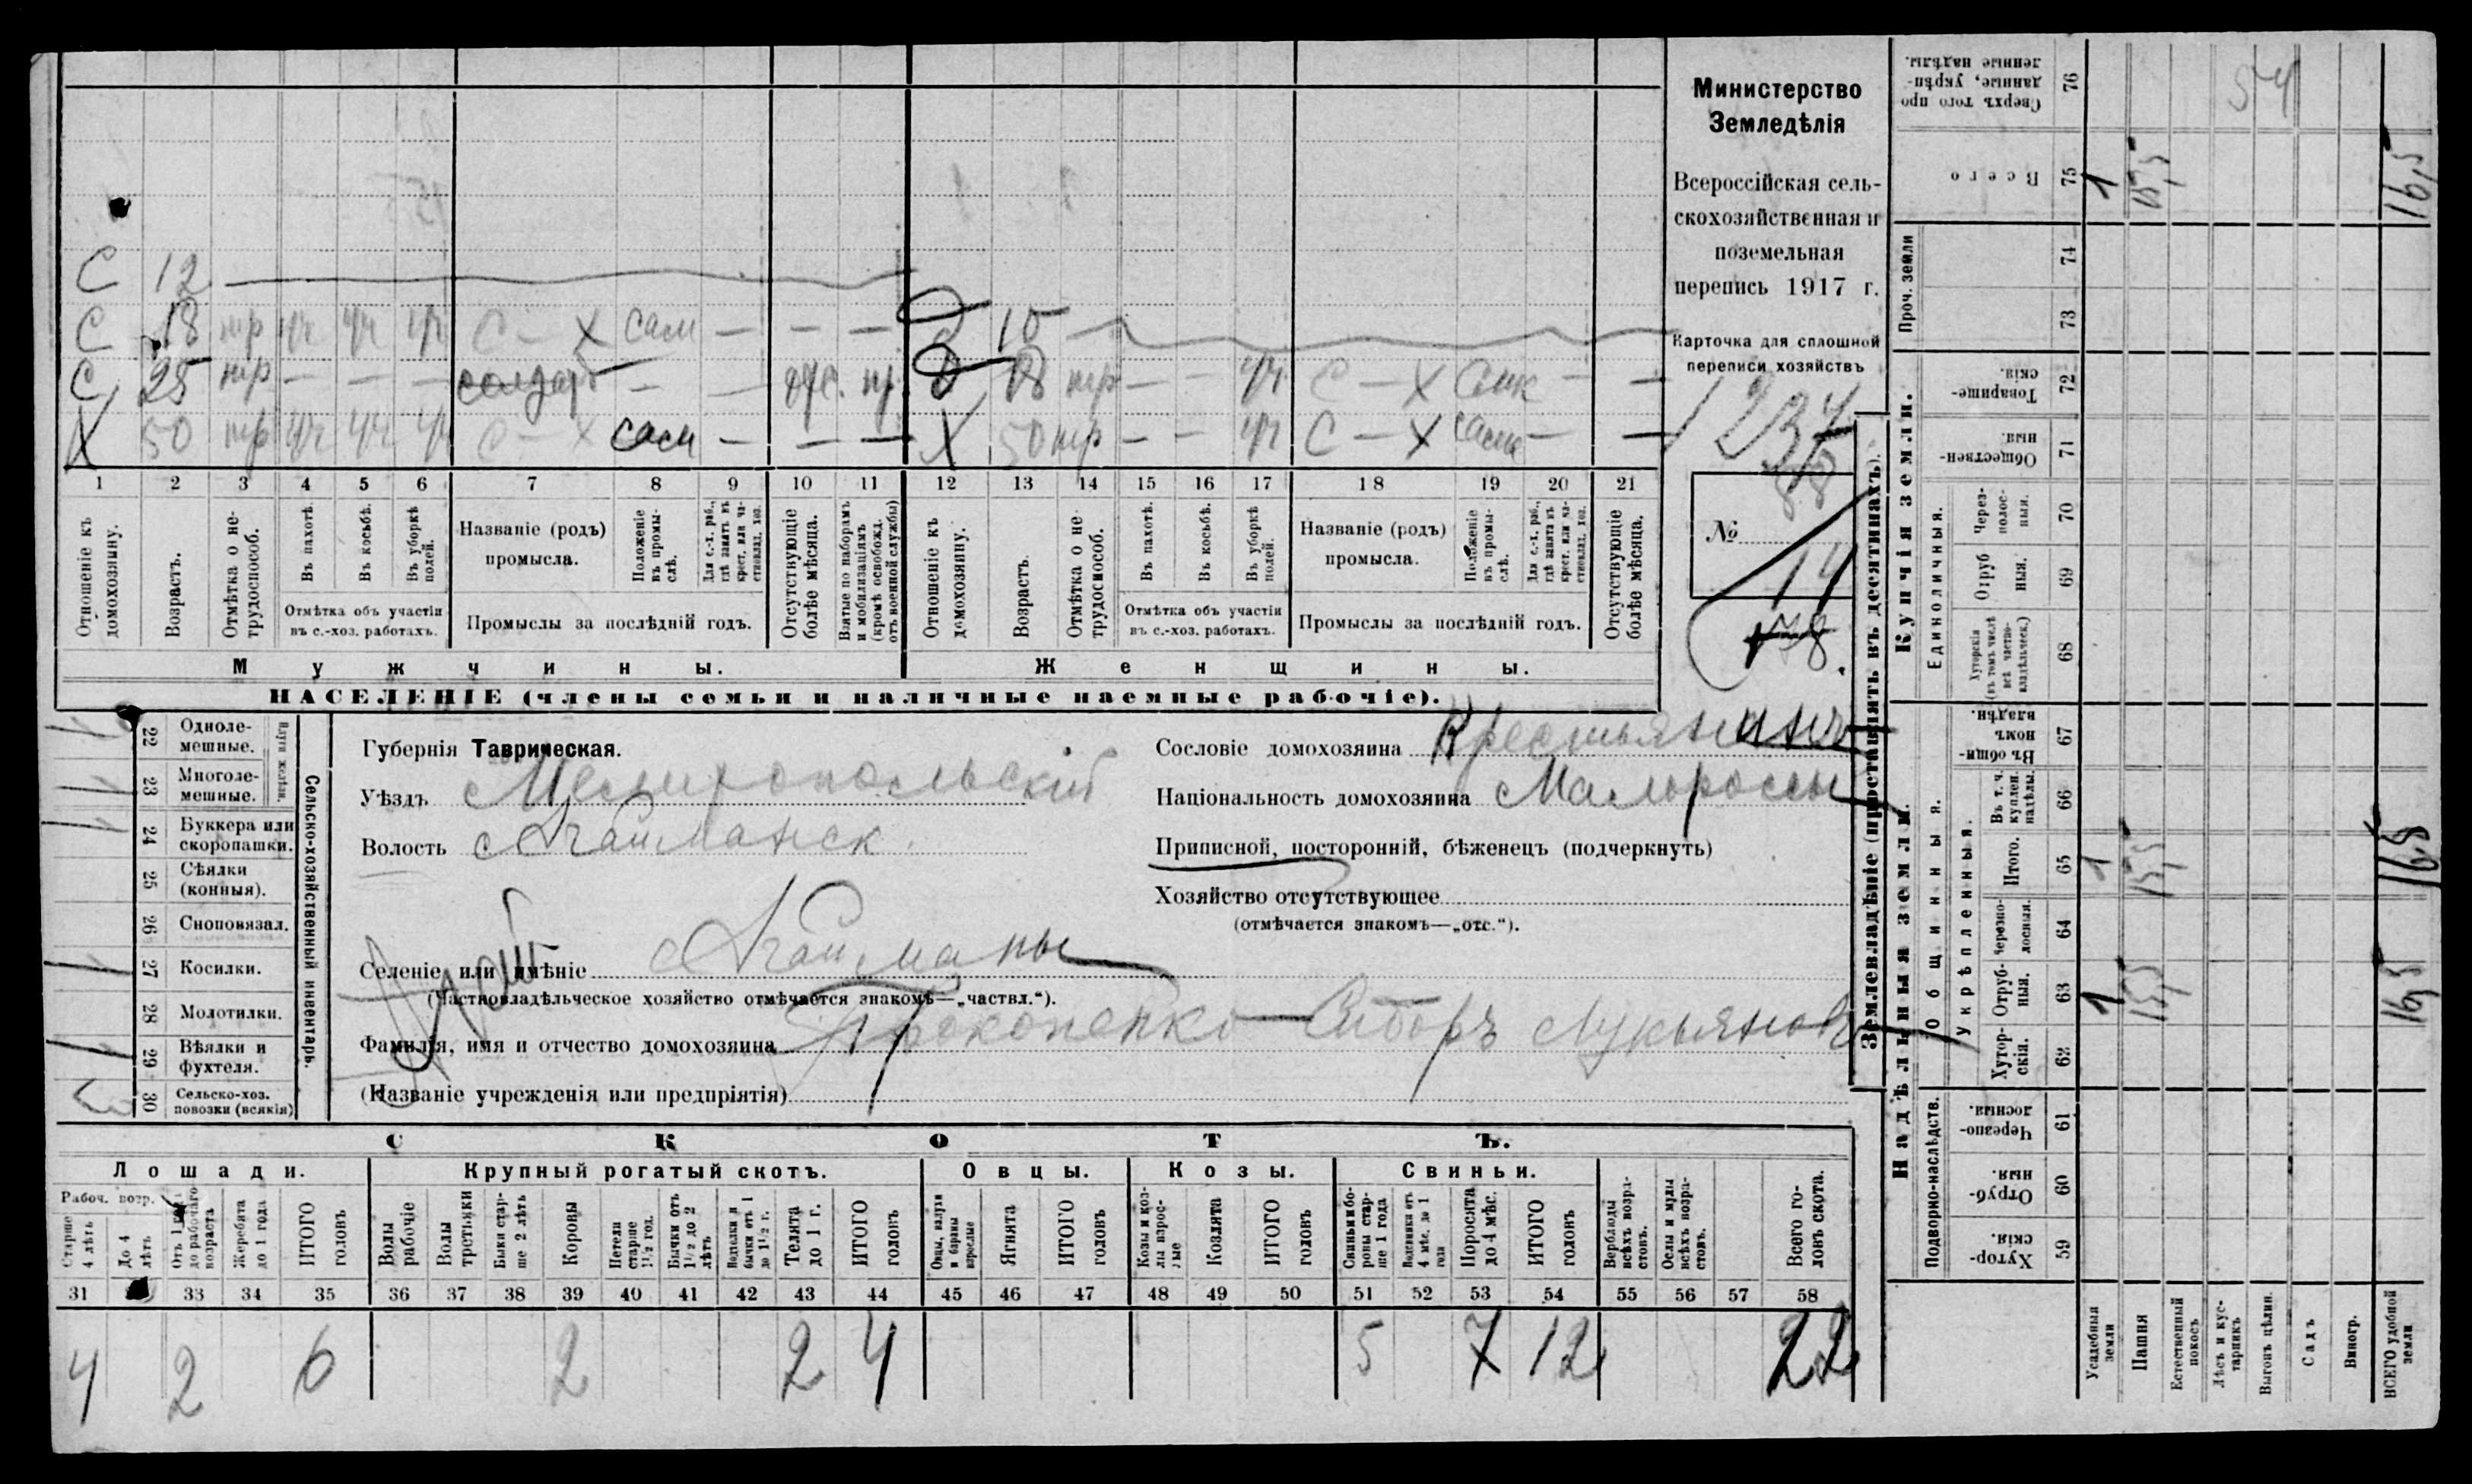 С 12
С 18 тр уч уч уч С-Х сам — — — Д 15
С 25 тр — — — солдат — — отс. пр. Д 18 тр — — уч С-Х — —
Х 50 тр уч уч уч С-Х сам — — — Х 50 тр — — уч С-Х — —
1 2 3 4 5 6 7 8 9 10 11 12 13 14 15 16 17 18 19 20 21
Отношеніе къ домохозяину.
Возрастъ.
Отмѣтка о не-
трудоспособ.
Въ пахотѣ.
Въ косьбѣ.
Въ уборкѣ
полей.
Отмѣтка объ участіи
въ с.-хоз. работахъ.
Названіе (родъ)
промысла.
Положеніе
въ промы-
слѣ.
Для с.-х. раб.,
гдѣ занятъ въ
крест. или ча-
стновлад. хоз.
Промыслы за послѣдній годъ.
Отсутствующіе
болѣе мѣсяца.
Взятые по наборамъ
и мобилизаціямъ
(кромѣ освобожд.
отъ военной службы)
Отношеніе къ
домохозяину.
Возрастъ.
Отмѣтка о не-
трудоспособ.
Въ пахотѣ.
Въ косьбѣ.
Въ уборкѣ
полей.
Отмѣтка объ участіи
въ с.-хоз. работахъ.
Названіе (родъ)
промысла.
Положеніе
въ промы-
слѣ.
Для с.-х. раб.,
гдѣ занята въ
крест. или ча-
стновлад. хоз.
Промыслы за послѣдній годъ.
Отсутствующіе
болѣе мѣсяца.
Мужчины.
Женщины.
НАСЕЛЕНІЕ (члены семьи и наличные наемные рабочіе).
Министерство
Земледѣлія
Всероссійская сель-
скохозяйственная и
поземельная
перепись 1917 г.
Карточка для сплошной
переписи хозяйствъ
1237
88
№
14
78
22 Однолe-
мешные.
23 Многоле-
мешные.
Плуги желѣзн.
24 Буккера или
скоропашки.
25 Сѣялки
(конныя).
26 Сноповязал.
27 Косилки.
28 Молотилки.
29 Вѣялки и
фухтеля.
30 Сельско-хоз.
повозки (всякія)
Сельско-хозяйственный инвентарь.
Губернія Таврическая.
Уѣздъ Мелитопольскій
Волость Агайманск.
Селеніе или имѣніе Агайманы
(Частновладѣльческое хозяйство отмѣчается знакомъ—„частвл.“).
Фамилія, имя и отчество домохозяина Прокопенко Сидоръ Лукьяновъ
(Названіе учрежденія или предпріятія)
Сословіе домохозяина Крестьянинъ
Національность домохозяина Малороссы
Приписной, посторонній, бѣженецъ (подчеркнуть)
Хозяйство отсутствующее
(отмѣчается знакомъ—„отс.“).
СКОТЪ.
Лошади. Крупный рогатый скотъ. Овцы. Козы. Свиньи.
Рабоч. возр.
Старше
4 лѣтъ
До 4
лѣтъ
Отъ 1 года
до рабочаго
возраста
Жеребята
до 1 года
ИТОГО
головъ
Волы
рабочіе
Волы
третьяки
Быки стар-
ше 2 лѣтъ
Коровы
Нетели
старше
1½ год.
Бычки отъ
1½ до 2
лѣтъ
Бычки отъ 1
до 1½ г.
Телята
до 1 г.
ИТОГО
головъ
Овцы, валухи
и бараны
взрослые
Ягнята
ИТОГО
головъ
Козы и коз-
лы взрос-
лые
Козлята
ИТОГО
головъ
Свиньи и бо-
ровы стар-
ше 1 года
Подсвинки отъ
4 мѣс. до 1
года
Поросята
до 4 мѣс.
ИТОГО
головъ
Верблюды
всѣхъ возра-
стовъ.
Ослы и мулы
всѣхъ возра-
стовъ.
Всего го-
ловъ скота.
31 33 34 35 36 37 38 39 40 41 42 43 44 45 46 47 48 49 50 51 52 53 54 55 56 57 58
4 2 6 2 2 4 5 7 12 22
Землевладѣніе (проставлять въ десятинахъ).
Купчія земли.
Надѣльныя земли.
Сверхъ того про-
данные, укрѣп-
ленные надѣлы.
76
54
Всего
75
1
15,5
16,5
Проч. земли
74
73
Товарище-
скія.
72
Обществен-
ныя.
71
Единоличныя.
Через-
полос-
ныя.
70
Отруб
ныя.
69
Хуторскія
(въ томъ числѣ
всѣ частно-
владѣльческ.)
68
Общинныя.
Въ общин-
номъ
владѣн.
67
Укрѣпленныя.
Въ т. ч.
куплен.
надѣлы.
66
Итого.
65
1
15,5
16,5
Черезпо-
лосныя.
64
Отруб-
ныя.
63
1
15,5
16,5
Хутор-
скія.
62
Подворно-наслѣдств.
Черезпо-
лосныя.
61
Отруб-
ныя.
60
Хутор-
скія.
59
Усадебныя
земли
Пашня
Естественный
покосъ
Лѣсъ и кус-
тарникъ
Выгонъ цѣлин.
Садъ
Виногр.
ВСЕГО удобной
земли